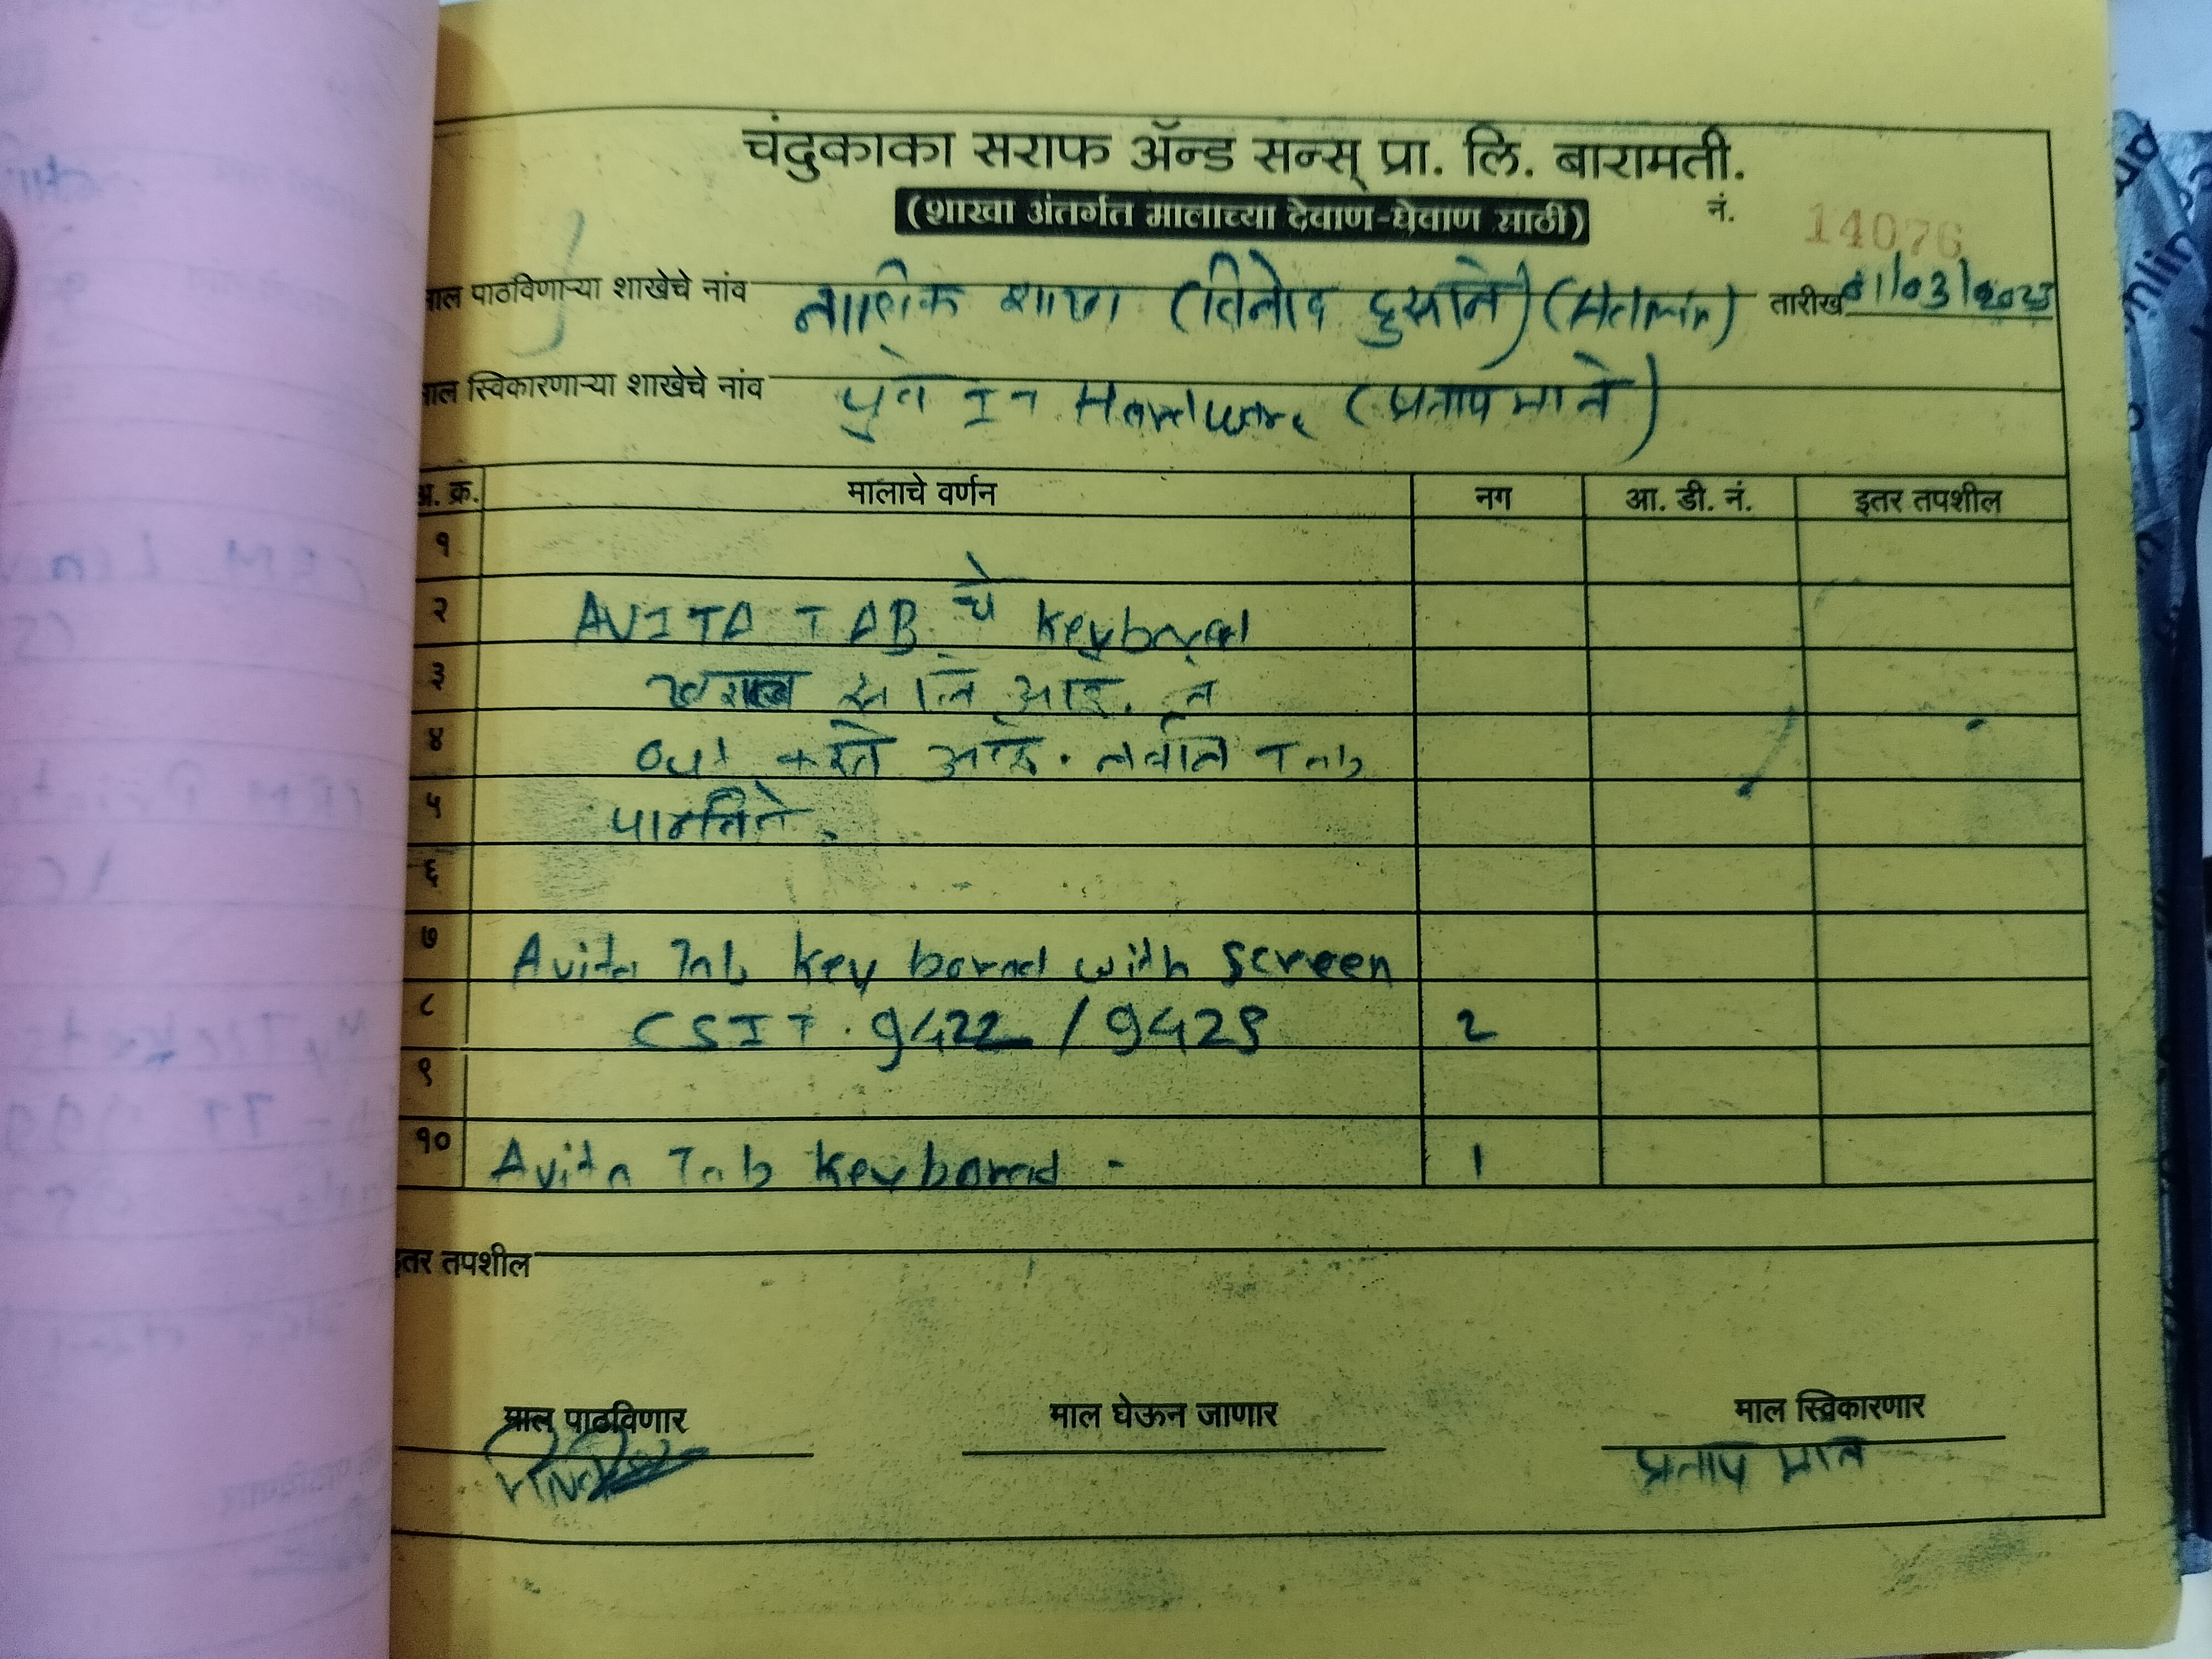 चंदुकाका सराफ ॲन्ड सन्स् प्रा. लि. बारामती.
(शाखा अंतर्गत मालाच्या देवाण-घेवाण साठी)
नं. 14076
माल पाठविणाऱ्या शाखेचे नांव नाशिक शाखा (विनोद दुसाने) (Admin) तारीख 01/03/2023
माल स्विकारणाऱ्या शाखेचे नांव पुणे IT Hardware (प्रताप माने)
अ. क्र. मालाचे वर्णन नग आ. डी. नं. इतर तपशील
१
२ AVITA TAB चे keyborad
३ खराब झाले आहे. ते
४ out करते आहे. नवीन Tab
५
६
७ Avita Tab key borad with screen
८ CSIT. 9422 / 9429 2
९
१० Avita Tab keyborad - 1
इतर तपशील
माल पाठविणार माल घेऊन जाणार माल स्विकारणार
प्रताप माने